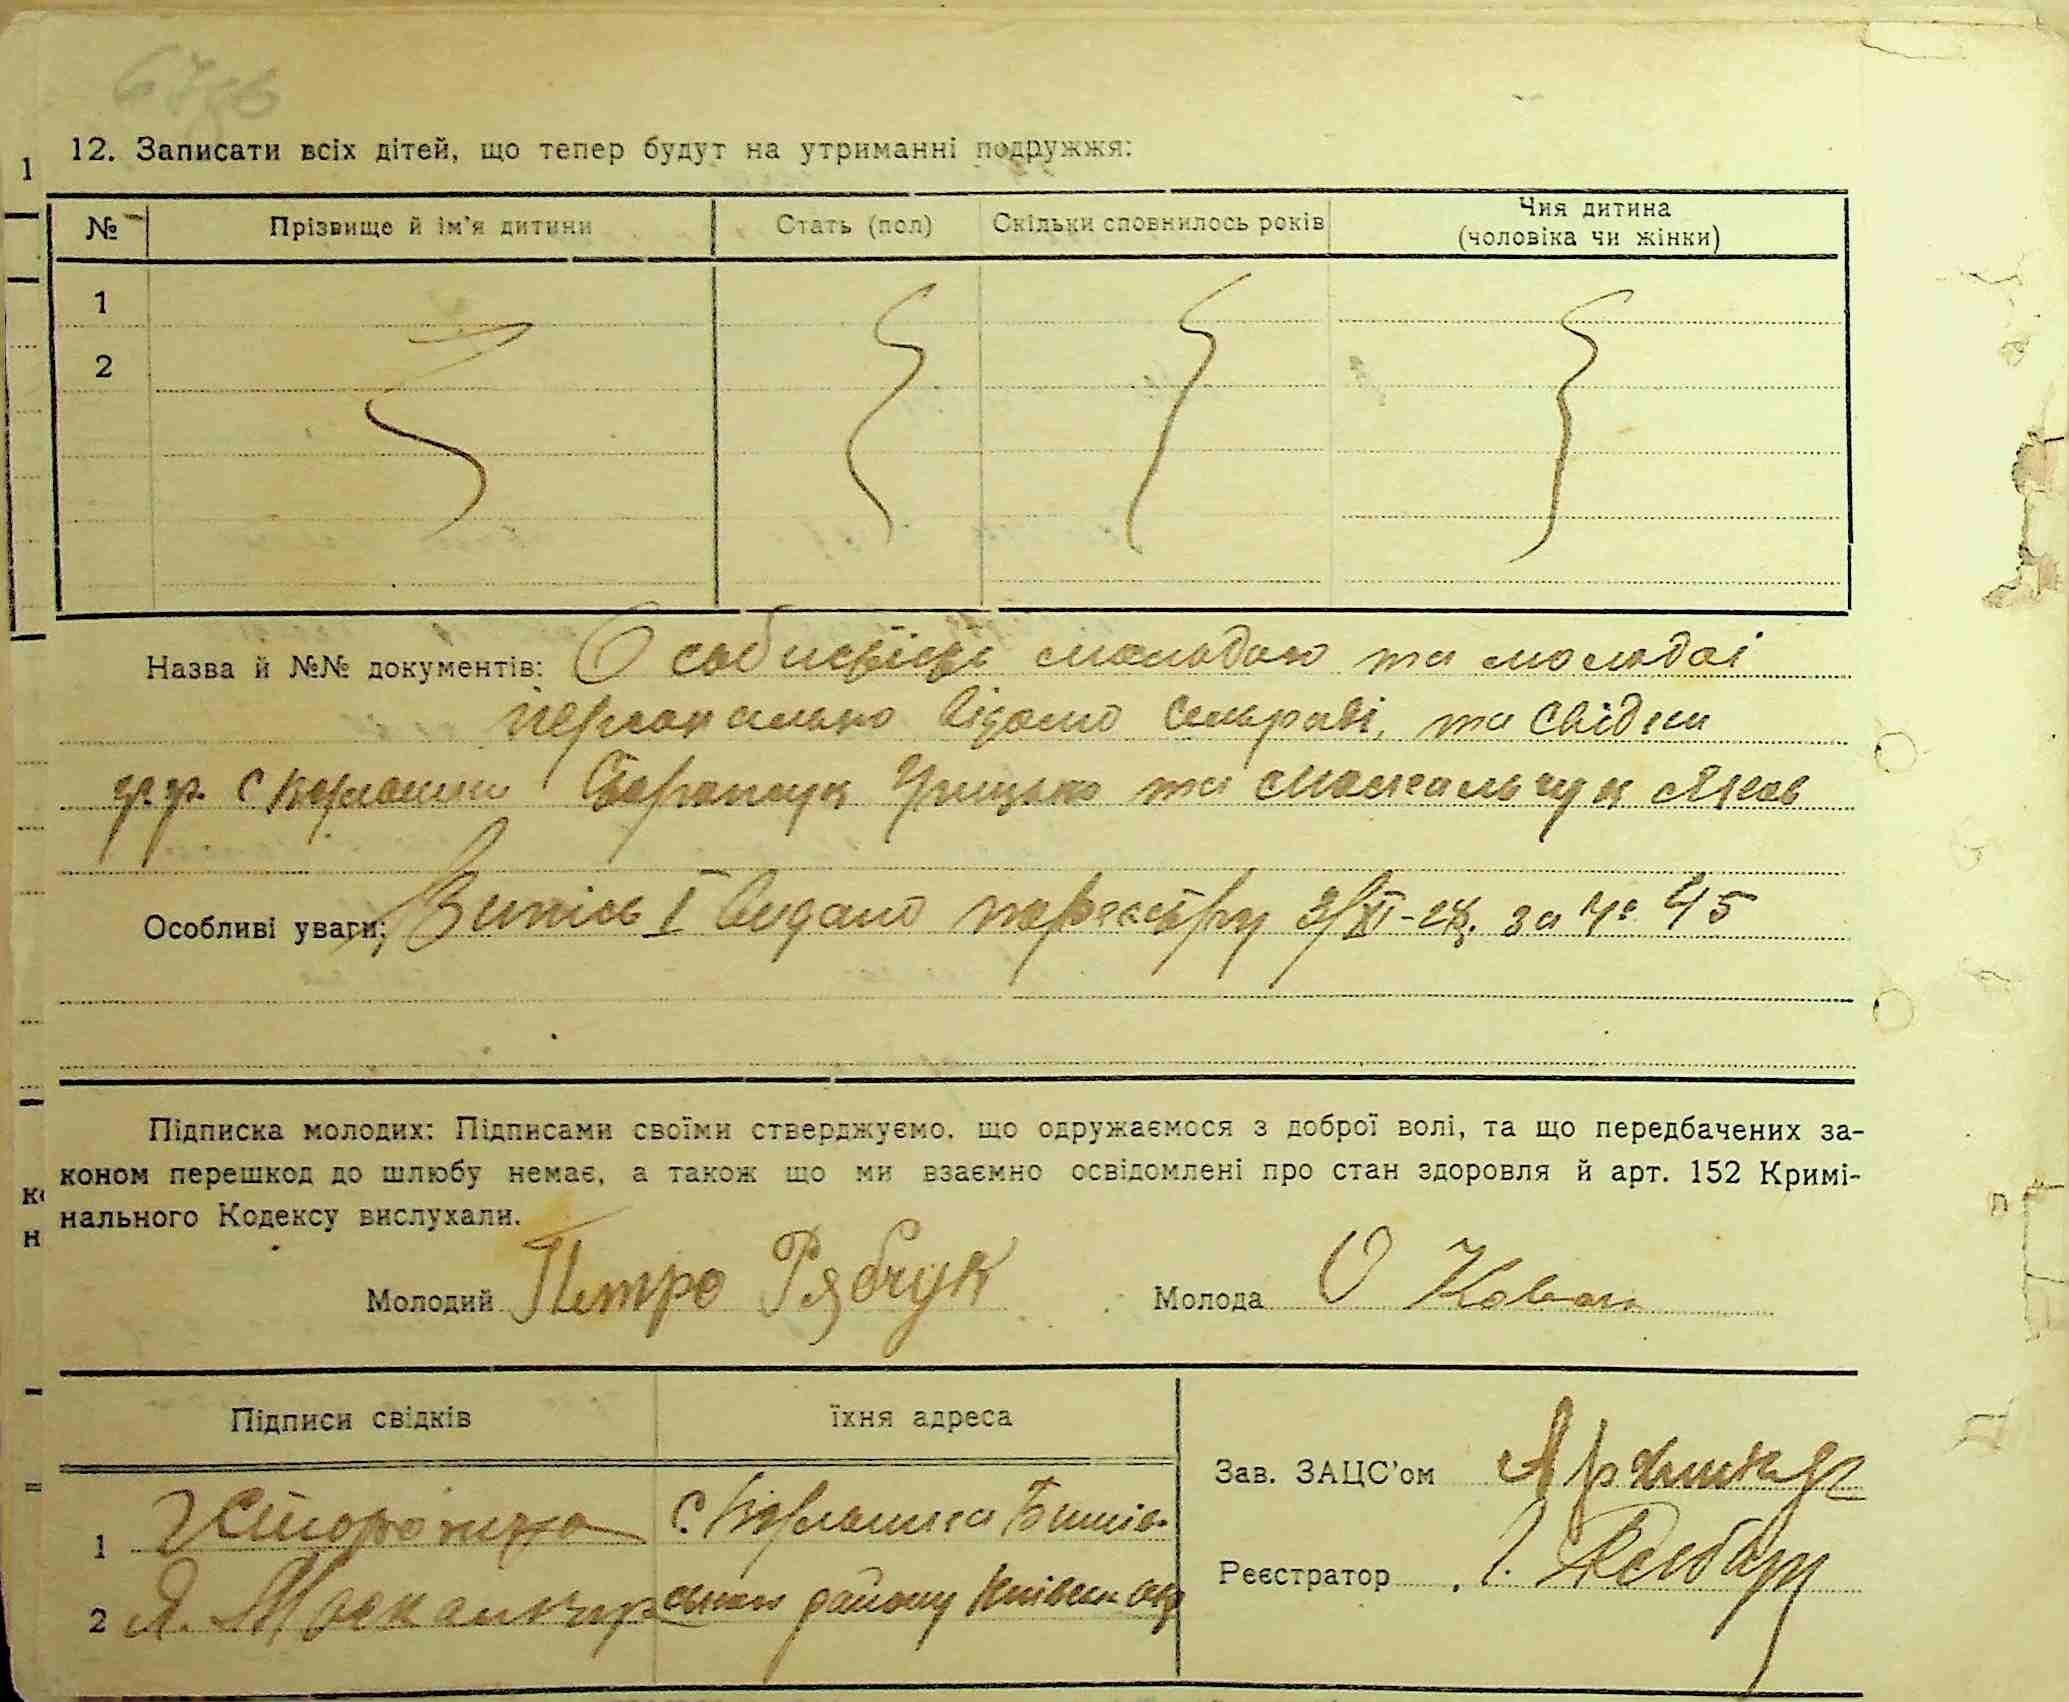 12. Записати всіх дітей, що тепер будут на утриманні подружжя:
№ Прізвище й ім'я дитини Стать (пол) Скільки сповнилось років Чия дитина
(чоловіка чи жінки)
1
2
Назва й №№ документів: Особистість молодого та молодої
персонально відомо сельраді, та свідки
гр.гр. с Грицько та Москальчук Яков
Особливі уваги: Випісь I видано по реєстру за № 45
Підписка молодих: Підписами своїми стверджуємо, що одружаємося з доброї волі, та що передбачених за-
коном перешкод до шлюбу немає, а також що ми взаємно освідомлені про стан здоровля й арт. 152 Кримі-
нального Кодексу вислухали.
Молодий Петро Рябчук Молода О Ковал
Підписи свідків їхня адреса
Зав. ЗАЦС'ом
1 с.
Реєстратор
2 Я. Москальчук району Київськ окр